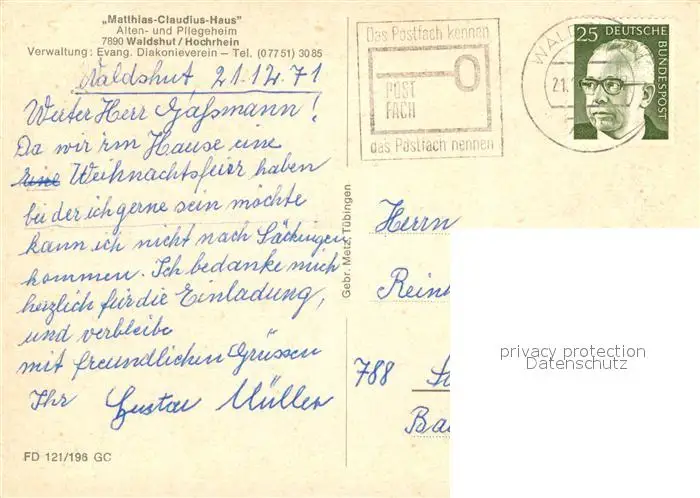 „Matthias-Claudius-Haus"
Alten- und Pflegeheim
7890 Waldshut/Hochrhein
Verwaltung: Evang. Diakonieverein – Tel. (07751) 3085
Waldshut 21.12.71
Werter Herr Gaßmann!
Da wir im Hause eine
eine Weihnachtsfeier haben
bei der ich gerne sein möchte
kann ich nicht nach Säckingen
kommen. Ich bedanke mich
herzlich für die Einladung,
und verbleibe
mit freundlichen Grüssen
Ihr Gustav Müller
FD 121/196 GC
Gebr. Metz, Tübingen
Das Postfach kennen
POST
FACH
das Postfach nennen
WALD
21.
25 DEUTSCHE
BUNDESPOST
Herrn
Rein
788
Ba
privacy protection
Datenschutz